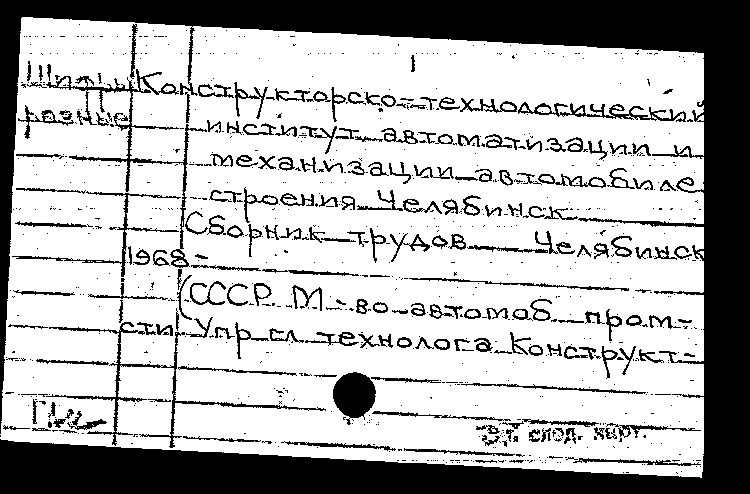 Шифры Конструкторско-технологический
разные институт автоматизации и
механизации автомобиле
строения Челябинск
Сборник трудов Челябинск
1968-
(СССР М-во автомоб пром-
сти Упр гл технолога Конструкт-
См. след. карт.